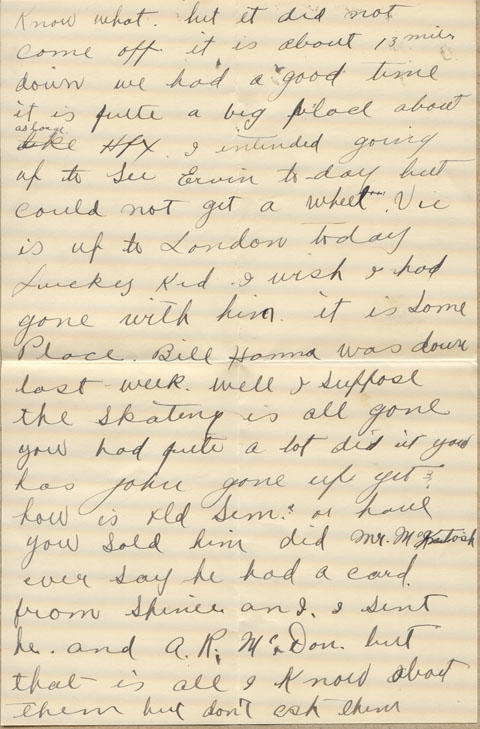 Know what. but it did not
come off it is about 13 miles
down we had a good time
it is quite a big place about
as large
like Hfx. I intended going
up to see Ervin to-day but
could not get a wheel. Vic
is up to London today
Luckey Kid. I wish I had
gone with him. it is some
Place. Bill Hanna was down
last week. well I suppose
the skating is all gone
you had quite a lot did it you
has John gone up yet?
how is old Sim? or have
you sold him did Mr. McKintosh
ever say he had a card.
from and. I sent
he. and A. R. Mc. Don. but
that is all I Know about
them but don't ask them